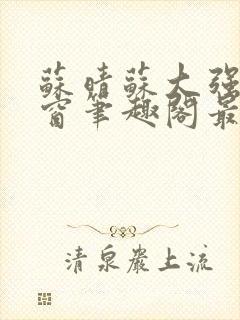 蘇晴蘇大强
窗筆趣閣最
清泉巖上流